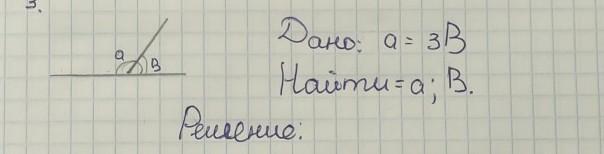 3.
a B
Дано: a = 3B
Найти = a; B.
Решение: